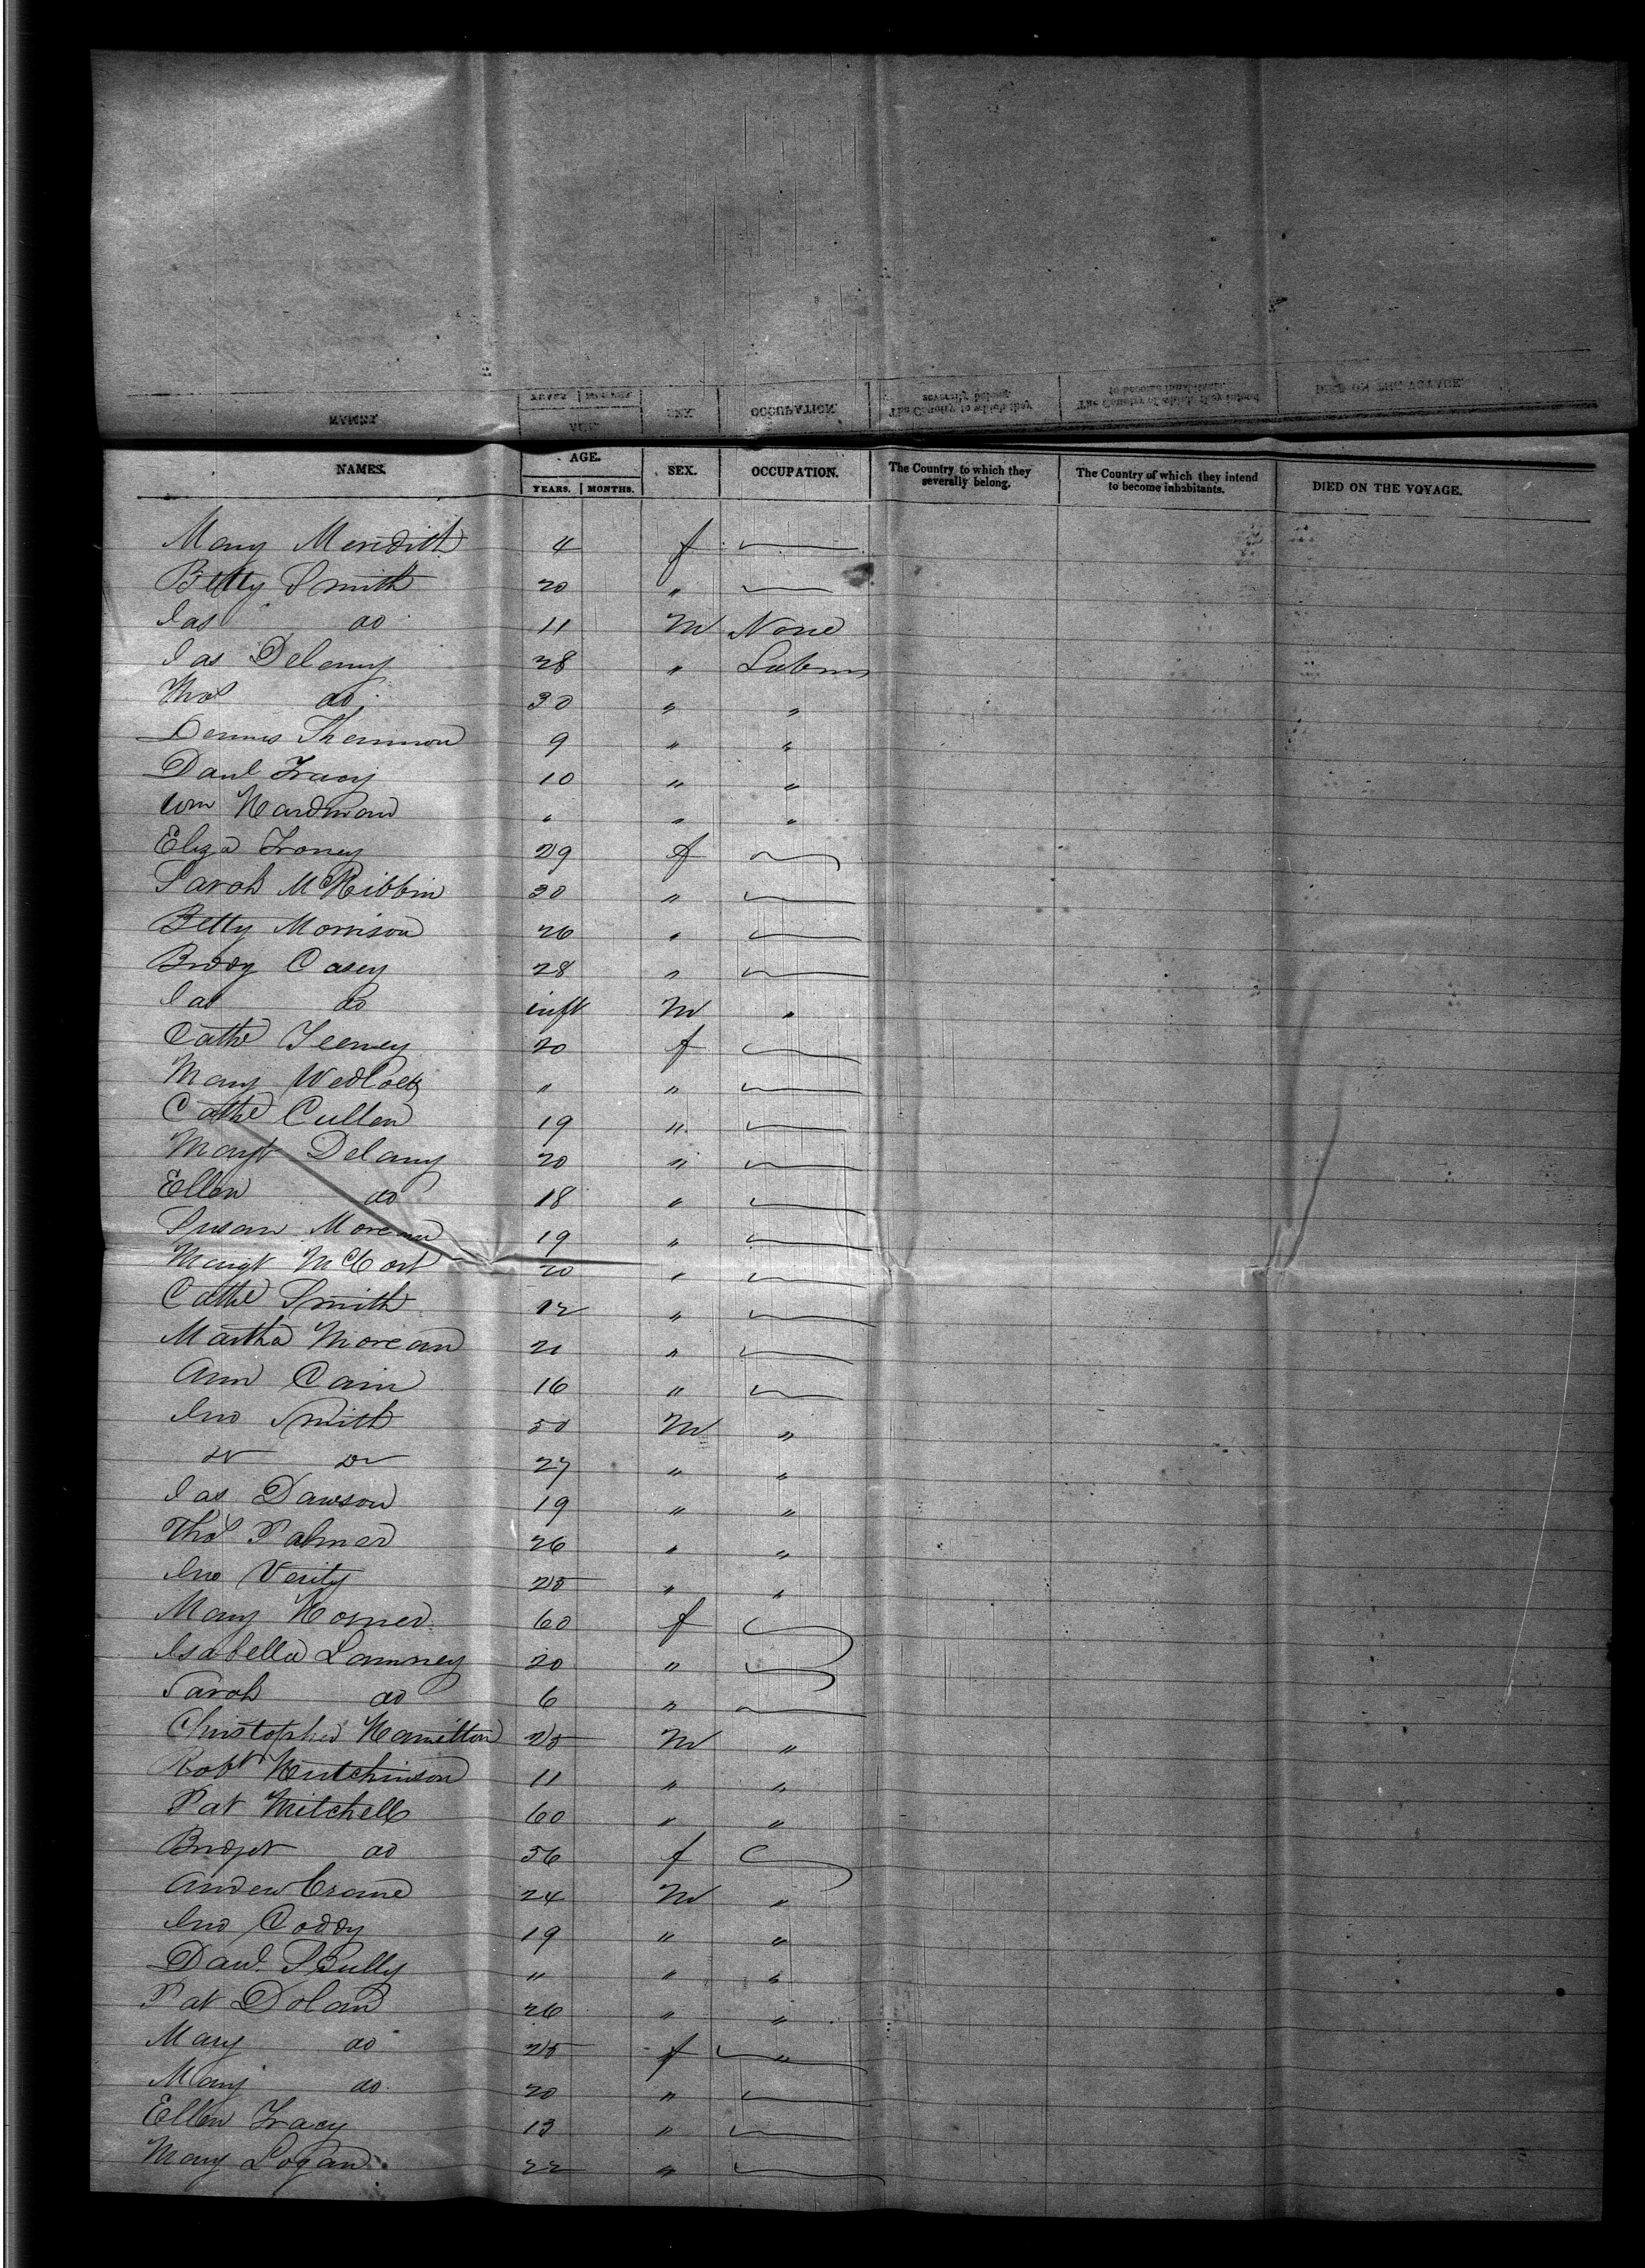 NAMES. AGE. SEX. OCCUPATION. The Country to which they severally belong. The Country of which they intend to become inhabitants. DIED ON THE VOYAGE.
YEARS. MONTHS.
Mary Meredith 4 f
Betty Smith 20 "
Jas do 11 M None
Jas Delany 28 " Labrs
Thos do 30 " "
Dennis Shannon 9 " "
Danl Tracy 10 " "
Wm Hardman " " "
Eliza Troney 29 f
Sarah McKibbin 30 "
Betty Morrison 26 "
Biddy Casey 28 "
Jas do inft M "
Cathe Feeney 20 f
Mary Wedlock " "
Cathe Cullen 19 "
Margt Delany 20 "
Ellen do 18 "
Susan Morean 19 "
Margt McCort 20 "
Cathe Smith 12 "
Martha Morean 21 "
Ann Cain 16 "
Jno Smith 50 M "
do do 27 " "
Jas Dawson 19 " "
Thos Palmer 26 " "
Jno Verity 25 " "
Mary Horner 60 f
Isabella Lamney 20 "
Sarah do 6 "
Christopher Hamilton 25 M "
Robt Hutchinson 11 " "
Pat Mitchell 60 " "
Bridget do 56 f
Andrew Crane 24 M "
Jno Coddy 19 " "
Danl. Scully " " "
Pat Dolan 26 " "
Mary do 25 f "
Mary do 20 "
Ellen Tracy 13 "
Mary Logan 22 "